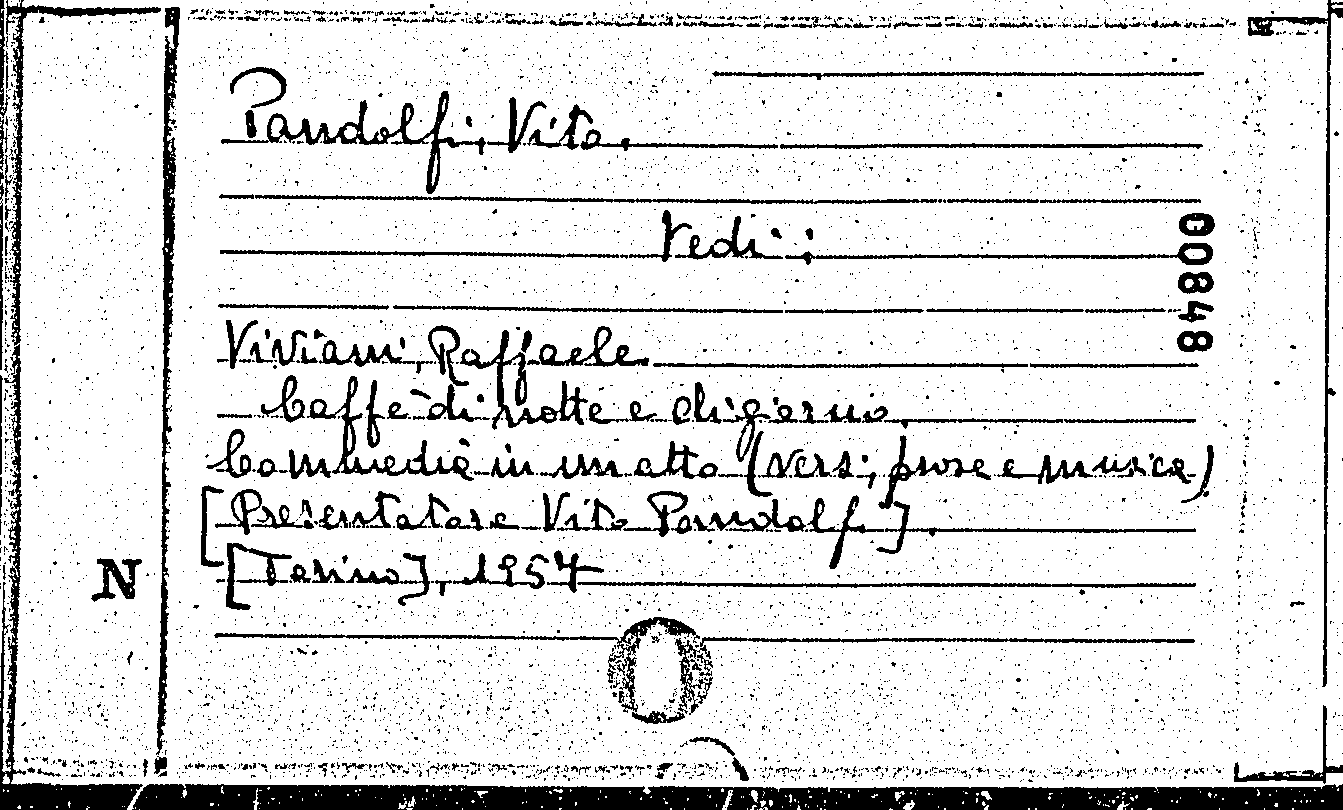 Pandolfi, Vito.
Vedi:
00848
Viviani, Raffaele
Caffè di notte e di giorno.
Commedia in un atto (versi, prosa e musica)
[Presentatore Vito Pandolfi].
[Torino], 1957
N